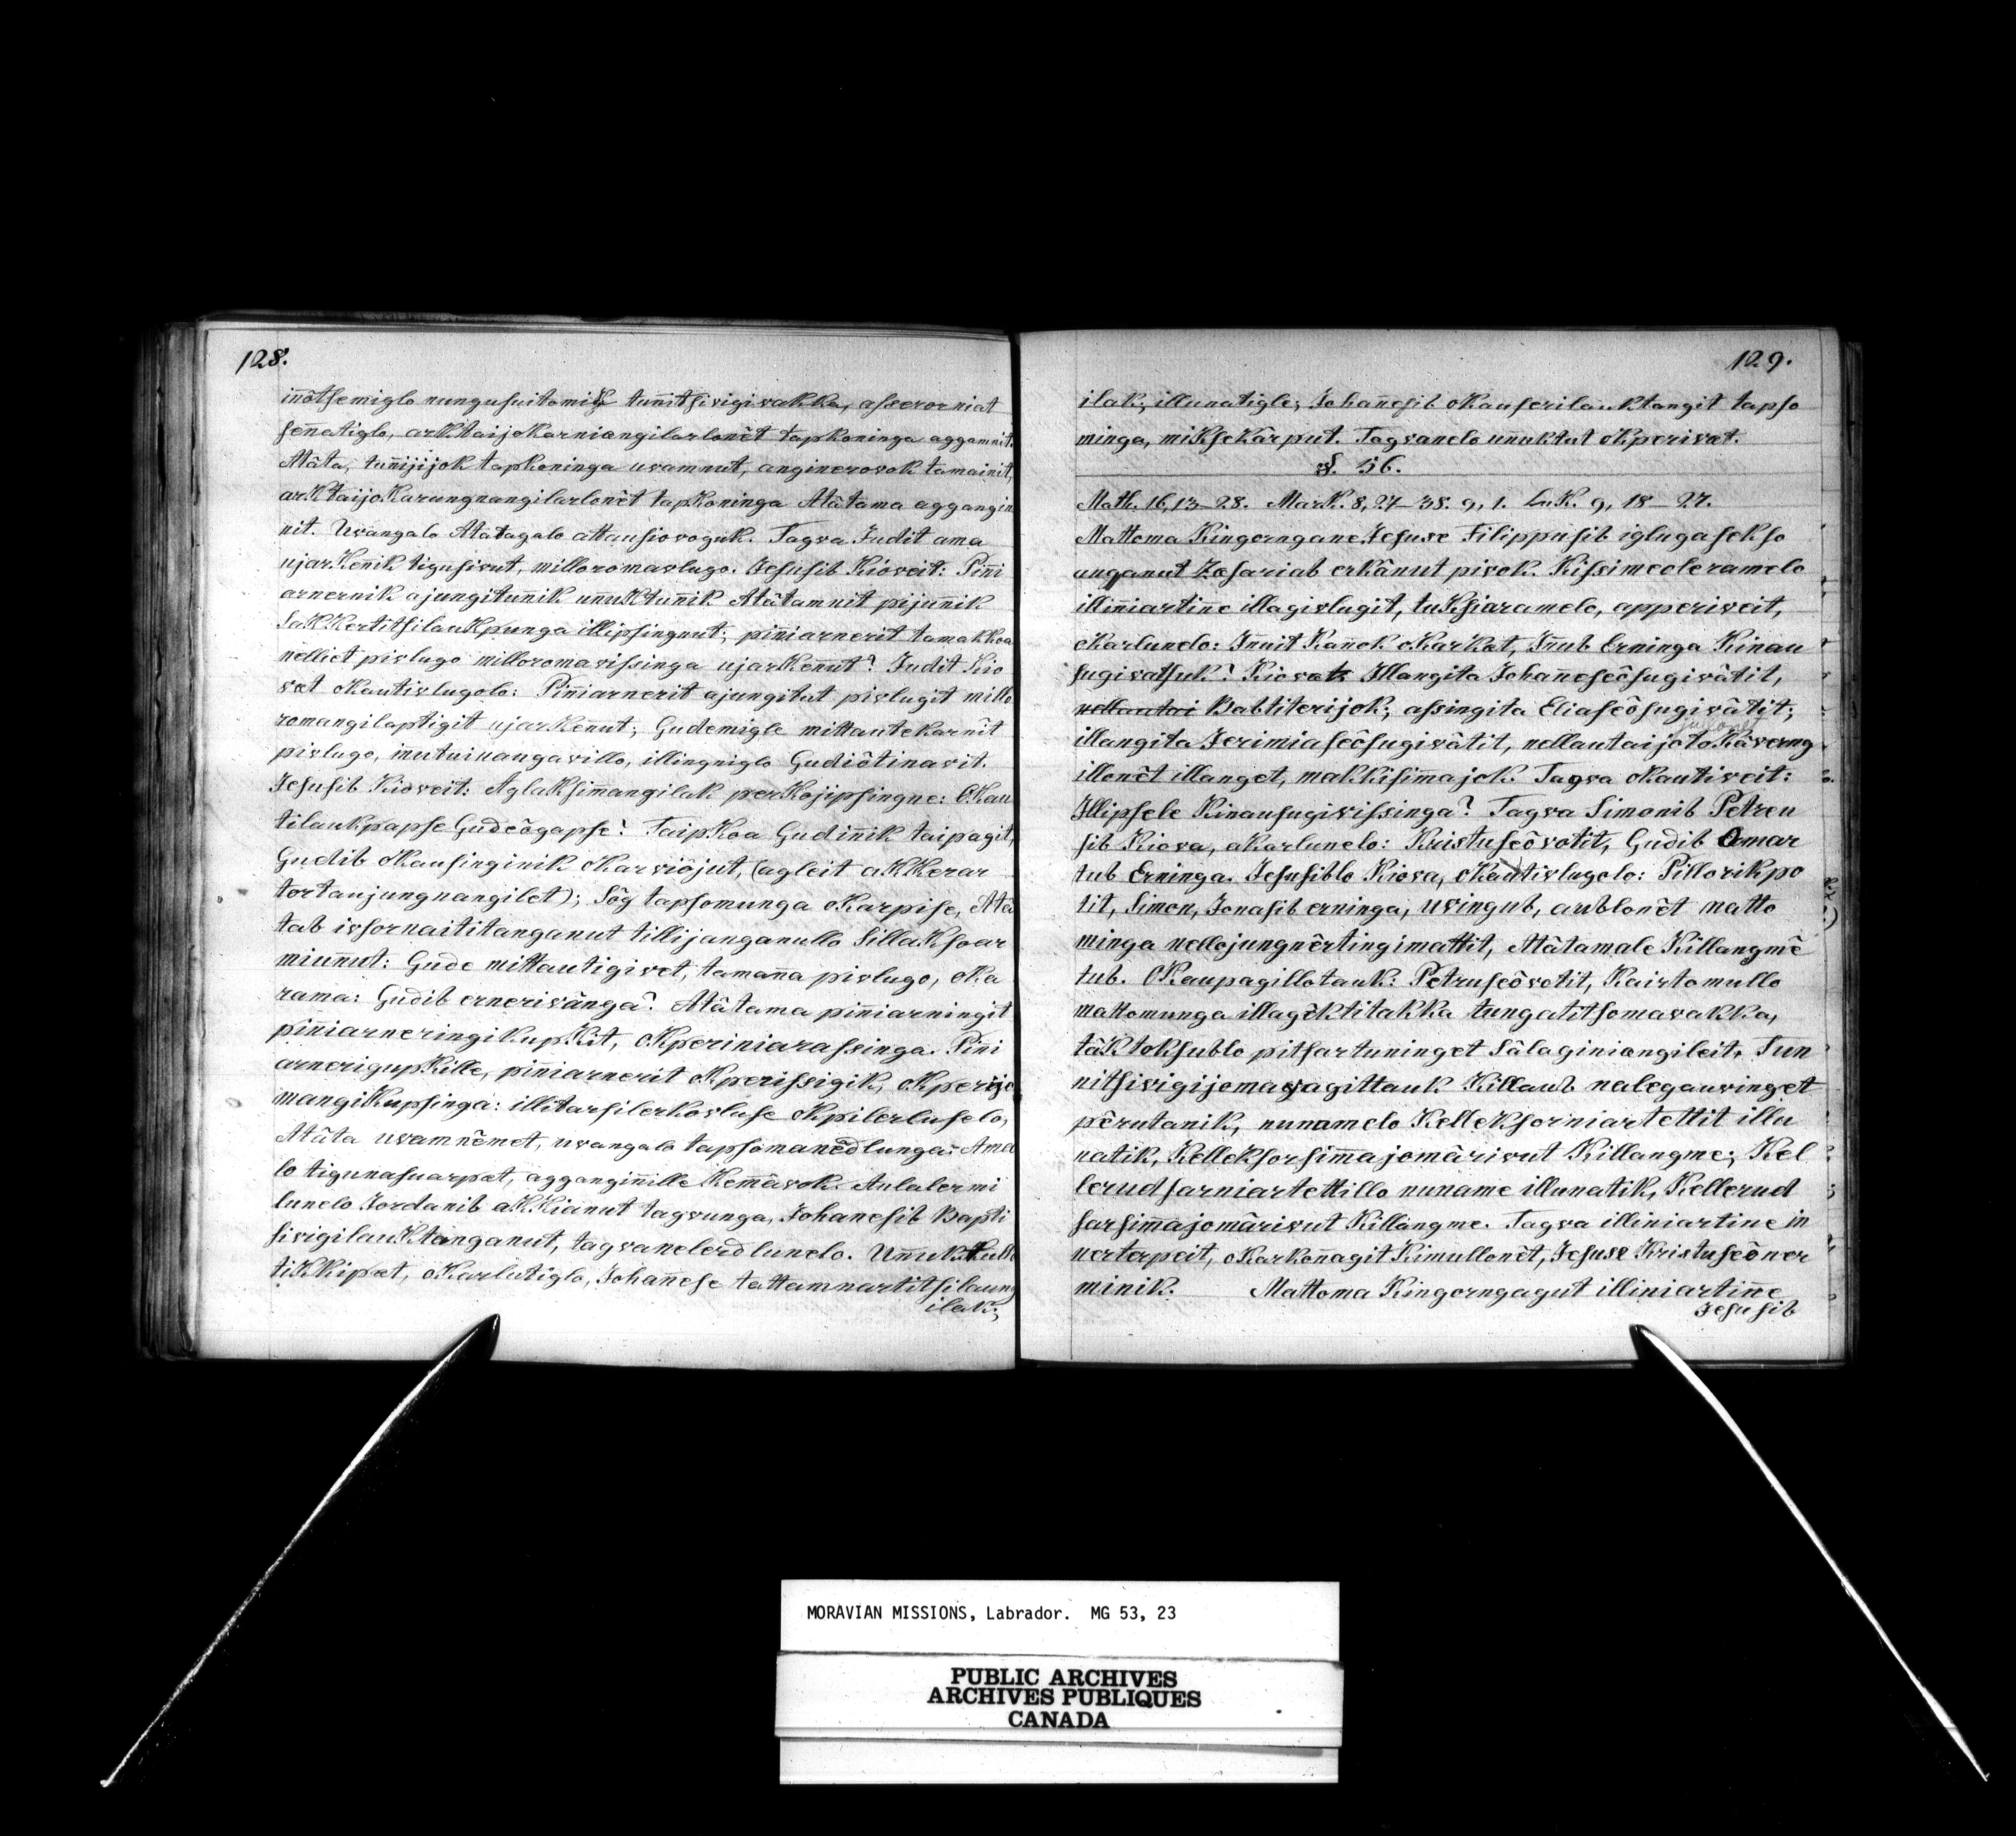 128.
innôtsemiglo nungusuitomik tunnitsivigivakka, asserorniat
sennatiglo, arktaijokarniangilarlonêt tapkoninga aggamnit.
Atâta, tunnijijok tapkoninga uvamnut, anginerovok tamainit,
arktaijokarungnangilarlonêt tapkoninga Atâtama aggangin
nit. Uvangalo Atâtagalo attausiovoguk. Tagva Judit ama
ujarkennik tigusivut, milloromavlugo. Jesusib Kioveit: Pinni
arnernik ajungitunnik unnuktunnik Atâtamnit pijunnik
SakKertitsilaukpunga illipsingnut; pinniarnerit tamakkoa
nelliet pivlugo milloromavissinga ujarkennut? Judit Kio
vet okautivlugolo: Pinniarnerit ajungitut pivlugit millo
romangilaptigit ujarkennut; Gudemigle mittautekarnît
pivlugo, innutuinaugavillo, illingniglo Gudiôtinavit.
Jesusib Kioveit: Aglaksimmangilak perkojipsingne: Okau
tilaukpapse Gudeôgapse? Taipkoa Gudinnik taipagit,
Gudib okausinginik okarviôjut, (agleit akKerar
tortaujungnangilet); Sôg tapsomunga okarpise, Atâ
tab ivsornaititanganut tillijanganullo Sillaksoar
miunnut: Gude mittautigivet, tamanna pivlugo, oka
rama: Gudib ernerivânga? Atâtama pinniarningit
pinniarneringikupkit, okperiniarassinga. Pinni
arnerigupkille, pinniarnerit okperissigik, okperijo
mangikupsinga: illitarsilerkovluse okpilerluselo,
Atâta uvamnêmet, uvangalo tapsomanêdlunga. Ama
lo tigunasuarpat, agganginnille Kemmâvok. Aulalermi
lunelo Jordanib akKianut tagvunga, Johanesib Bapti
sivigilauktanganut, tagvanelerdlunelo. Unnuktullo
tikKipat, okarlutiglo, Johannese tattamnartitsilaung
ilak;
129.
ilak; illunatigle; Johannesib okauserilauktangit tapso
minga, miksekârput. Tagvanelo unnuktut okperivat.
§. 56.
Math. 16,13–28. Mark. 8,27–38. 9, 1. Luk. 9, 18–27.
Mattoma Kingorngane Jesuse Filippusib iglugasekso
anganut Zesariab erkânut pivok. Kissimeoleramelo
illinniartinne illagivlugit, tuksiaramelo, apperiveit,
okarlunelo: Innuit Kannok okarkat, Innub Erninga Kinau
sugivatsuk? Kiovat Illangita Johanneseôsugivâtit,
Babtiterijok; assingita Eliaseôsugivâtit;
illangita Jerimiaseôsugivâtit, nellautaijotokâverng
illonêt illanget, makkisimmajok. Tagva okautiveit:
Illipsele Kinausugivissinga? Tagva Simonib Petreu
sib Kiova, okarlunelo: Kristuseôvotit, Gudib Omar
tub Erninga. Jesusiblo Kiova, okautivlugolo: Pillorikpo
tit, Simon, Jonasib erninga, uvingub, aublonêt matto
minga nellojungnêrtingimattit, Atâtamale Killangmê
tub. Okaupagillotauk: Petruseôvotit, Kairtomullo
mattomunga illagêktitakka tungatitsomavakka,
tâktoksublo pitsartuninget Sâlaginiangileit, Tun
nitsivigijomavagittauk Killaub nalegauvinget
pêrutanik, nunamelo Kelleksorniartettit illu
natik, Kelleksorsimmajomârivut Killangme; Kel
lerudsarniartettillo nuname illunatik, Kellerud
sarsimmajomârivut Killangme. Tagva illiniartine in
nerterpeit, okarkonnagit Kimullonêt, Jesuse Kristuseôner
minik. Mattoma Kingorngagut illiniartinne
Jesusib
MORAVIAN MISSIONS, Labrador. MG 53, 23
PUBLIC ARCHIVES
ARCHIVES PUBLIQUES
CANADA